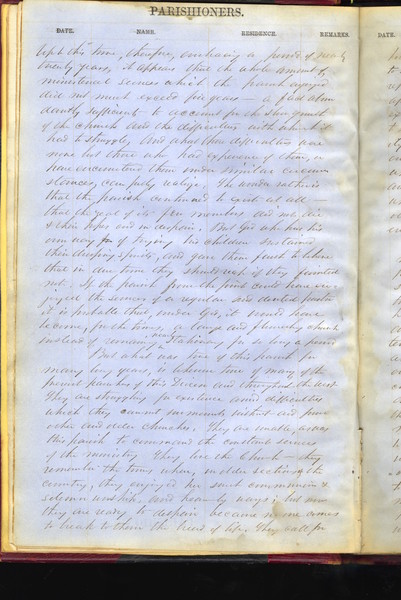 PARISHIONERS.
DATE. NAME. RESIDENCE. REMARKS.
Upto this time, therefore, embracing a period of nearly
twenty years, it appears that the whole amount of
ministerial services which the parish enjoyed
did not much exceed five years — a fact abun
dantly sufficient to account for the slow growth
of the church and the difficulties with which it
had to struggle. And what these difficulties were
none but those who had experience of them, or
have encountered them under similar circum
stances, can fully realize. The wonder rather is
that the parish continued to exist at all —
that the zeal of its few members did not die
& their hopes end in despair. But God who has his
own way of trying his children sustained
their drooping spirits, and gave them faith to believe
that in due time they should reap if they fainted
not. If the parish from the first could have en
joyed the services of a regular and devoted pastor
it is probable that, under God, it would have
become, for the times, a large and flourishing church
instead of remaining nearly stationary for so long a period
But what was true of this parish for
many long years, is likewise true of many of the
present parishes of this Diocese and throughout the west.
They are struggling for existence amid difficulties
which they cannot surmount without aid from
other and older churches. They are unable, as was
this parish to command the constant services
of the ministry. They love the Church — they
remember the times when, in older sections of the
country, they enjoyed her sweet communion &
solemn worship, and heavenly ways; but now
they are ready to despair because no one comes
to break to them the bread of life. They call for
DATE.